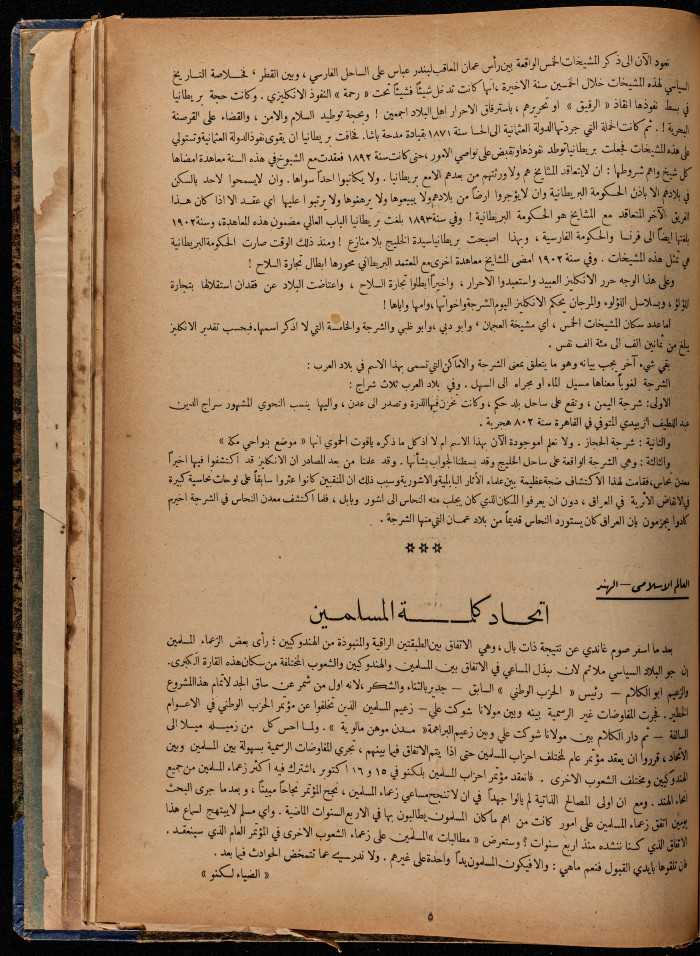 نعود الآن الى ذكر المشيخات الخمس الواقعة بين رأس عمان المعاقب لبندر عباس على الساحل الفارسي ، وبين القطر ، فخلاصة التاريخ
السياسي لهذه المشيخات خلال الخمسين سنة الاخيرة ، انها كانت تدخل شيئاً فشيئاً تحت « رحمة » النفوذ الانكليزي . وكانت حجة بريطانيا
في بسط نفوذها انقاذ « الرقيق » او تحريرهم ، باسترقاق الاحرار اهل البلاد اجمعين ! وبحجة توطيد السلام والامن ، والقضاء على القرصنة
البحرية ! . ثم كانت الحملة التي جردتها الدولة العثمانية الى الحسا سنة ١٨٧١ بقيادة مدحة باشا . فخافت بريطانيا ان يقوى نفوذ الدولة العثمانية وتستولي
على هذه المشيخات فجعلت بريطانيا توطد نفوذها وتقبض على نواصي الامور ، حتى كانت سنة ١٨٩٢ فعقدت مع الشيوخ في هذه السنة معاهدة امضاها
كل شيخ واهم شروطها : ان لا يتعاقد المشايخ هم ولا ورثتهم من بعدهم الا مع بريطانيا . ولا يكاتبوا احداً سواها . وان لا يسمحوا لاحد بالسكن
في بلادهم الا باذن الحكومة البريطانية وان لا يؤجروا ارضاً من بلادهم ولا يبيعوها ولا يرهنوها ولا يرتبوا عليها اي عقد الا اذا كان هذا
الفريق الآخر المتعاقد مع المشايخ هو الحكومة البريطانية ! وفي سنة ١٨٩٣ بلغت بريطانيا الباب العالي مضمون هذه المعاهدة ، وسنة ١٩٠٢
بلغتها ايضاً الى فرنسا والحكومة الفارسية ، وبهذا اصبحت بريطانيا سيدة الخليج بلا منازع ! ومنذ ذلك الوقت صارت الحكومة البريطانية
هي تمثل هذه المشيخات . وفي سنة ١٩٠٢ امضى المشايخ معاهدة اخرى مع المعتمد البريطاني محورها ابطال تجارة السلاح !
وعلى هذا الوجه حرر الانكليز العبيد واستعبدوا الاحرار ، واخيراً ابطلوا تجارة السلاح ، واعتاضت البلاد عن فقدان استقلالها بتجارة
اللؤلؤ ، وبسلاسل اللؤلوء والمرجان يحكم الانكليز اليوم الشرجة واخواتها ، وامها واباها !
اما عدد سكان المشيخات الخمس ، اي مشيخة العجمان ، وابو دبي ، وابو ظبي والشرجة والخامسة التي لا اذكر اسمها . فبحسب تقدير الانكليز
يبلغ من ثمانين الف الى مئة الف نفس .
بقي شيء آخر يجب بيانه وهو ما يتعلق بمعنى الشرجة والاماكن التي تسمى بهذا الاسم في بلاد العرب :
الشرجة لغوياً معناها مسيل الماء او مجراه الى السهل . وفي بلاد العرب ثلاث شراج :
الاولى : شرجة اليمن ، وتقع على ساحل بلد حكم ، وكانت تخزن فيها الذرة وتصدر الى عدن ، واليها ينسب النحوي المشهور سراج الدين
عبد اللطيف الزبيدي المتوفي في القاهرة سنة ٨٠٢ هجرية .
والثانية : شرجة الحجاز . ولا نعلم اموجودة الآن بهذا الاسم ام لا اذ كل ما ذكره ياقوت الحموي انها « موضع بنواحي مكة »
والثالثة : وهي الشرجة الواقعة على ساحل الخليج وقد بسطنا الجواب بشأنها . وقد علمنا من بعد المصادر ان الانكليز قد اكتشفوا فيها اخيراً
معدن نحاس ، فقامت لهذا الاكتشاف ضجة عظيمة بين علماء الآثار البابلية والاشورية وسبب ذلك ان المنقبين كانوا عثروا سابقاً على لوحات نحاسية كبيرة
في الانقاض الأثرية في العراق ، دون ان يعرفوا المكان الذي كان يجلب منه النحاس الى اشور وبابل ، فلما اكتشف معدن النحاس في الشرجة اخيرم
كادوا يجزمون بان العراق كان يستورد النحاس قديماً من بلاد عمان التي منها الشرجة .
***
العالم الاسلامي — الهند
اتحاد كلمة المسلمين
بعد ما اسفر صوم غاندي عن نتيجة ذات بال ، وهي الاتفاق بين الطبقتين الراقية والمنبوذة من الهندوكيين ؛ رأى بعض الزعماء المسلمين
ان جو البلاد السياسي ملائم لان يبذل المساعي في الاتفاق بين المسلمين والهندوكيين والشعوب المختلفة من سكان هذه القارة الكبرى .
والزعيم ابو الكلام — رئيس « الحزب الوطني » السابق — جدير بالثناء والشكر ، لانه اول من شمر عن ساق الجد لاتمام هذا المشروع
الخطير . فجرت المفاوضات غير الرسمية بينه وبين مولانا شوكت علي — زعيم المسلمين الذين تخلفوا عن مؤتمر الحزب الوطني في الاعوام
السالفة — ثم دار الكلام بين مولانا شوكت علي وبين زعيم البراهمة « مدن موهن مالوية » . ولما احس كل من زميله ميلا الى
الاتحاد ، قرروا ان يعقد مؤتمر عام لمختلف احزاب المسلمين حتى اذا يتم الاتفاق فيما بينهم ، تجري المفاوضات الرسمية بسهولة بين المسلمين وبين
الهندوكيين ومختلف الشعوب الاخرى . فانعقد مؤتمر احزاب المسلمين بلكنو في ١٥ و ١٦ اكتوبر ، اشترك فيه اكثر زعماء المسلمين من جميع
انحاء الهند . ومع ان اولى المصالح الذاتية لم يالوا جهداً في ان لا تنجح مساعي زعماء المسلمين ، نجح المؤتمر نجاحاً مبيناً ، وبعد ما جرى البحث
يومين اتفق زعماء المسلمين على امور كانت من اهم ما كان المسلمون يطالبون بها في الاربع السنوات الماضية . واي مسلم لا يبتهج لسماع هذا
الاتفاق الذي كنا ننشده منذ اربع سنوات ؟ وستعرض « مطالبات » المسلمين على زعماء الشعوب الاخرى في المؤتمر العام الذي سينعقد .
فان تلقوها بايدي القبول فنعم ماهي : والا فيكون المسلمون يداً واحدة على غيرهم . ولا ندري عما تتمخض الحوادث فيما بعد .
« الضياء لكنو »
٥